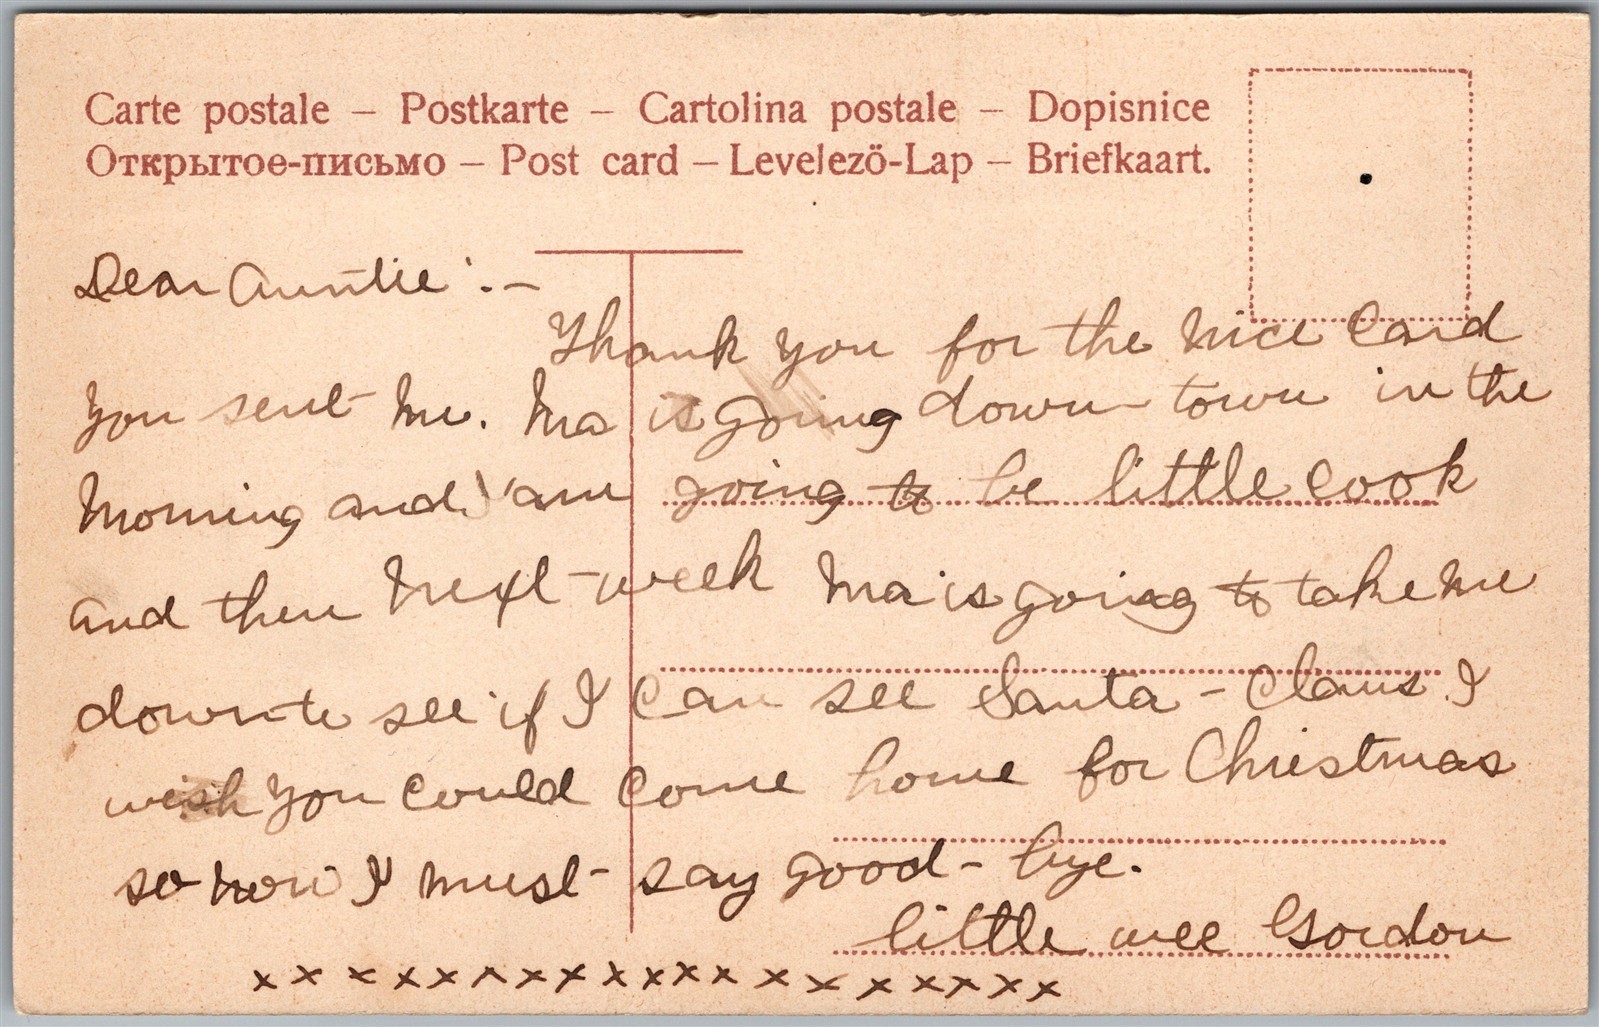 Carte postale – Postkarte – Cartolina postale – Dopisnice
Открытое-письмо – Post card – Levelezö-Lap – Briefkaart.
Dear Auntie :–
Thank you for the nice Card
you sent me. Ma is going down town in the
Morning and I am going to be little cook
and then Next week Ma is going to take me
down to see if I can see Santa - Claus I
wish you could come home for Christmas
so now I must say good - bye.
little wee Gordon
x x x x x x x x x x x x x x x x x x x x